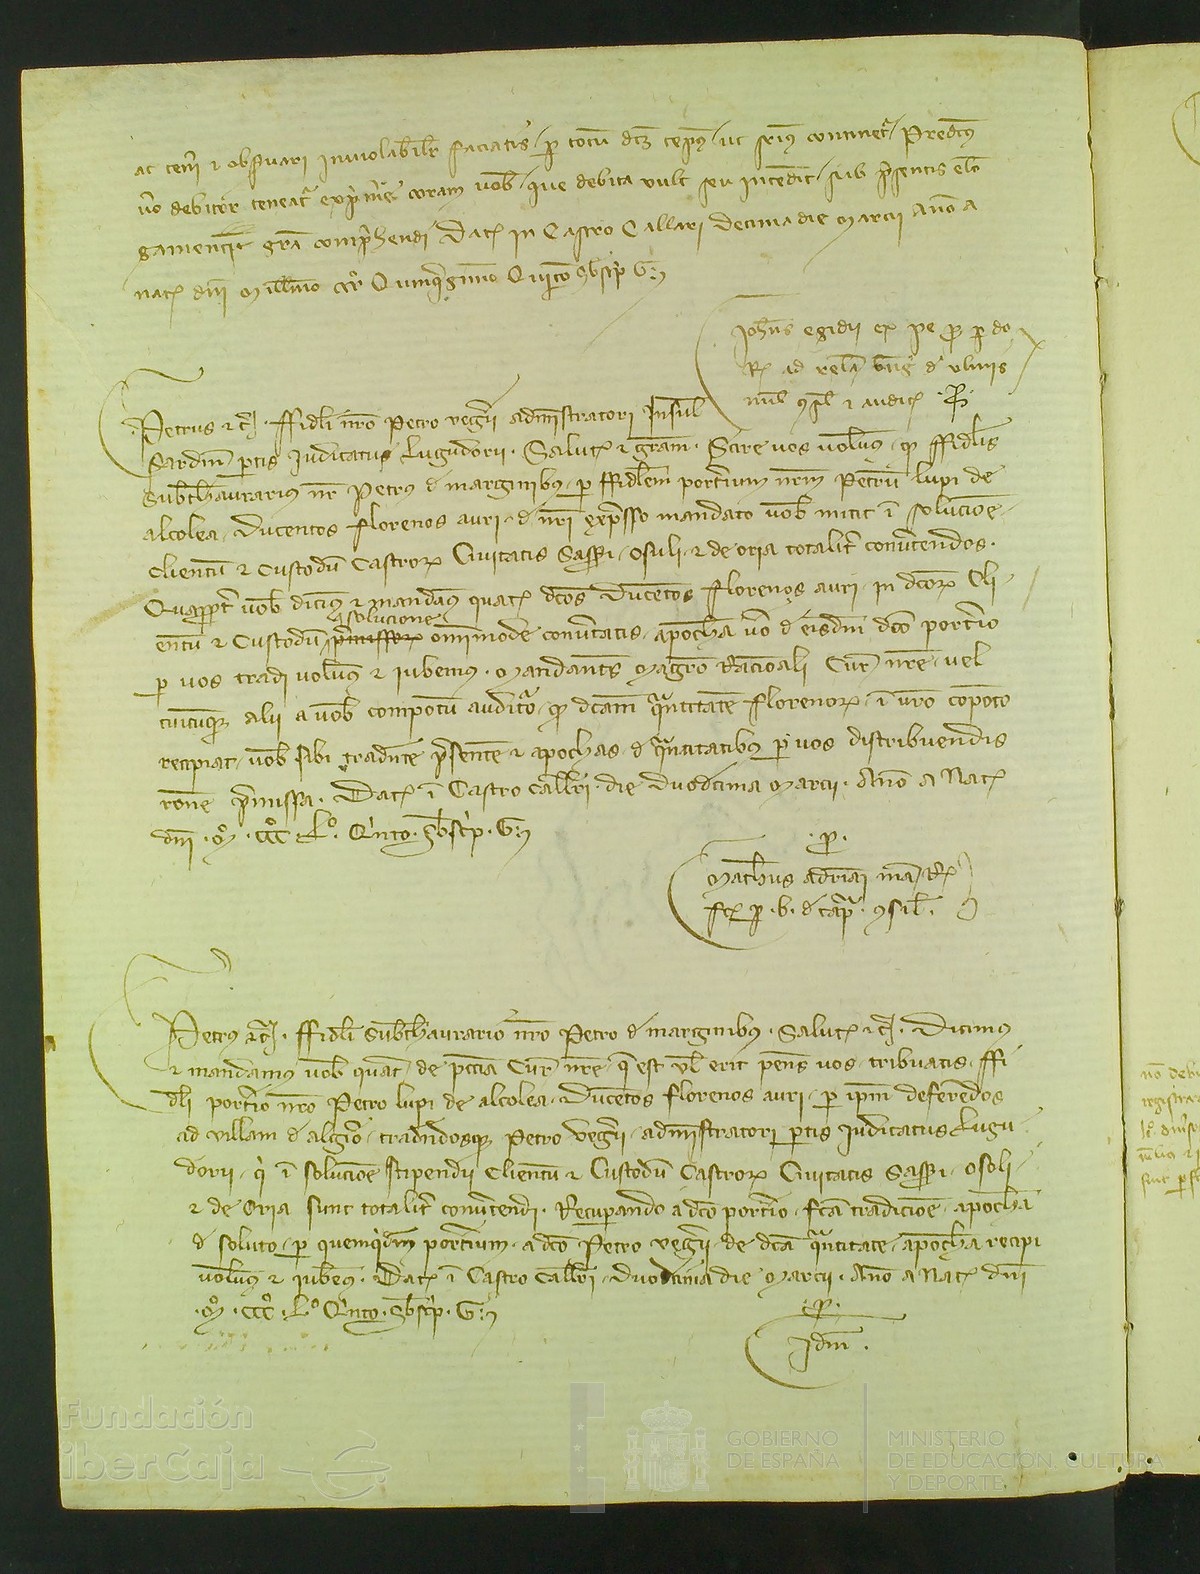 ac teneri et observari inviolabiliter faciatis per totum dictum tempus ut superius continetur Predictus
vero debitor teneatur exprimere coram vobis que debita vult seu intendit sub presentis elon
gamenti gracia comprehendi Dat in Castro Callari decima die Marcii anno a
nat dni Millmo ccc Quinqgesimo Quinto subscr G
Johes egidii ex pe
Rex ad relacem
consil et audit
Petrus etc ffideli nro Petro administratori Insule
Sardinie partis Judicatus Lugudorii Salut et gram Scire vos volumus quod ffidelis
Subthesaurarius nr Petrus de marginibus per ffidelem porterium nrm Petrum lupi de
alcolea Ducentos florenos auri de nri expresso mandato vobis mittit in solucione
Clientum et Custodum Castrorum Civitatis Sasseri Osuli et de oria totaliter convertendos
Quapropter vobis dicimus et mandamus quatenus dictos Ducentos florenos auri in dictorum Cli
solucione
entum et Custodum premissorum omnimode convertatis apocham vero de eisdem dicto porterio
per vos tradi volumus et iubemus Mandantes Magistro Racionali Curie nre vel
cuicumque alii a vobis compotum audituro quod dictam quantitatem florenorum in vestro compoto
recipiat vobis sibi tradente presentem et apochas de quantitatibus per vos distribuendis
racione premissa Dat in Castro Callari die Duodecima Marcii Anno a Nat
dni M CCC L Quinto subscr G
P
Matheus adriani mandato Regis
fact per b de capraria consil
Petrus etc ffideli Subthesaurario nro Petro de marginibus Salut etc Dicimus
et mandamus vobis quatenus de peccunia Curie nre que est vel erit penes vos tribuatis ffi
deli porterio nro Petro lupi de alcolea Ducentos florenos auri per ipsum deferendos
ad villam de alguerio tradendosque Petro administratori partis Judicatus Lugu
dorii qui in solucione stipendii Clientum et Custodum Castrorum Civitatis Sasseri Osoli
et de Oria sunt totaliter convertendi Recuperando a dicto porterio facta tradicione apocham
de soluto per quemquidem porterium a dicto Petro de dicta quantitate apocham recipi
volumus et iubemus Dat in Castro Callari Duodecima die Marcii Anno a Nat dni
M CCC L Quinto subscr G
P
Idem
Fundación
iberCaja
GOBIERNO
DE ESPAÑA
MINISTERIO
DE EDUCACIÓN, CULTURA
Y DEPORTE